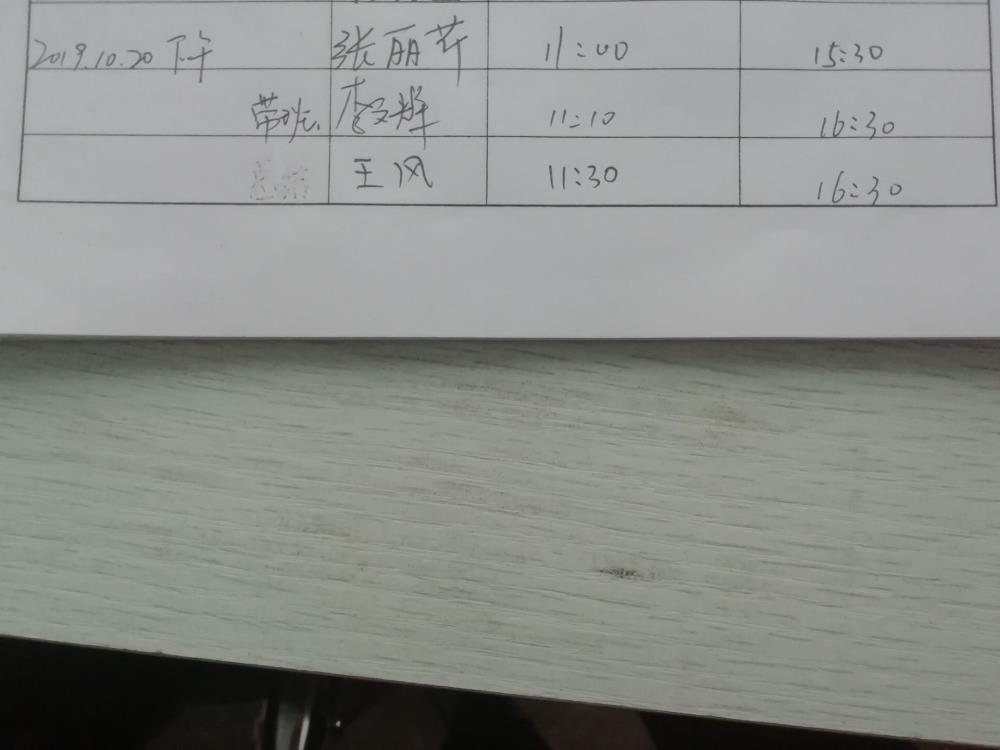 2019.10.20 下午 张丽芹 11:00 15:30
带班 李文辉 11:10 16:30
王风 11:30 16:30